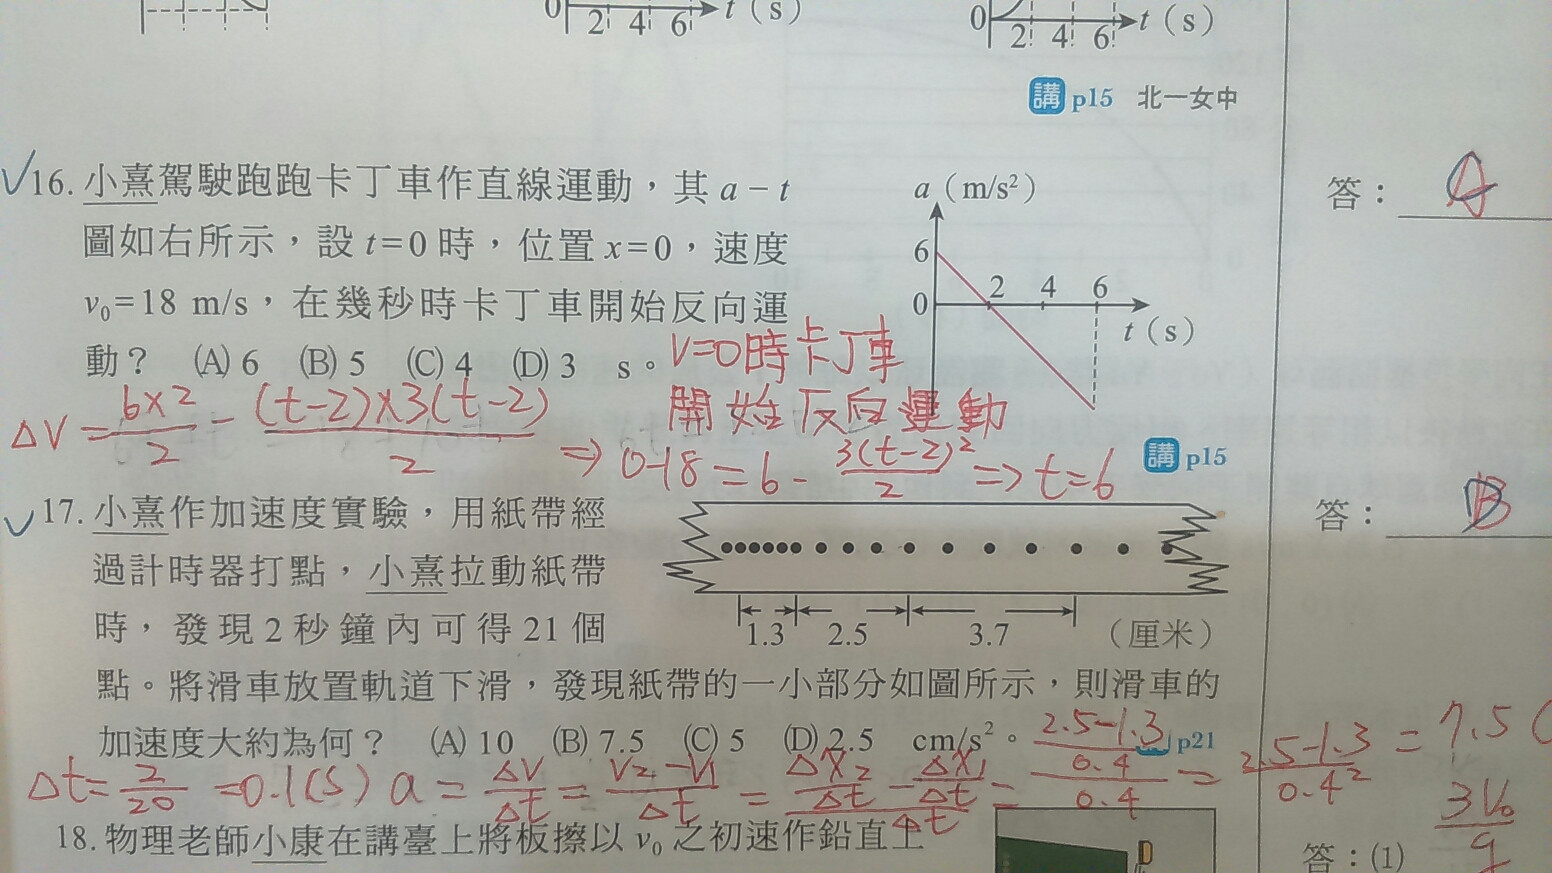 0 2 4 6 t (s)
0 2 4 6 t (s)
講 p15 北一女中
16. 小熹駕駛跑跑卡丁車作直線運動，其 a－t
圖如右所示，設 t=0 時，位置 x=0，速度
v₀=18 m/s，在幾秒時卡丁車開始反向運
動？ (A) 6 (B) 5 (C) 4 (D) 3 s。
a（m/s²）
6
0 2 4 6
t（s）
答： A
V=0時卡丁車
開始反向運動
ΔV = 6×2/2 - (t-2)×3(t-2)/2 ⇒ 0-18 = 6 - 3(t-2)²/2 ⇒ t=6
講 p15
17. 小熹作加速度實驗，用紙帶經
過計時器打點，小熹拉動紙帶
時，發現 2 秒鐘內可得 21 個
點。將滑車放置軌道下滑，發現紙帶的一小部分如圖所示，則滑車的
加速度大約為何？ (A) 10 (B) 7.5 (C) 5 (D) 2.5 cm/s²。
1.3 2.5 3.7 （厘米）
答： B
p21
Δt = 2/20 = 0.1(s) a = ΔV/Δt = (V₂-V₁)/Δt = (ΔX₂/Δt - ΔX₁/Δt)/Δt = ((2.5-1.3)/0.4)/0.4 = (2.5-1.3)/0.4² = 7.5 (
18. 物理老師小康在講臺上將板擦以 v₀ 之初速作鉛直上
答：(1) 3V₀/g